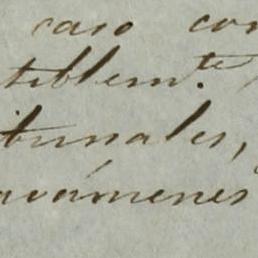 caso con
tiblem.te
ibunales,
avámenes